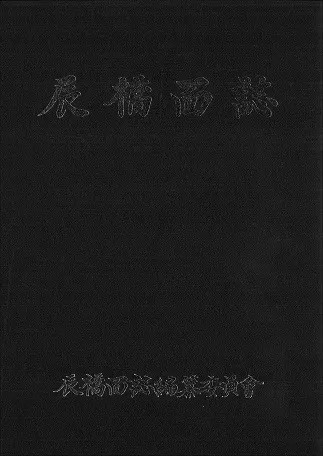 辰橋面誌
辰橋面誌編纂委員會